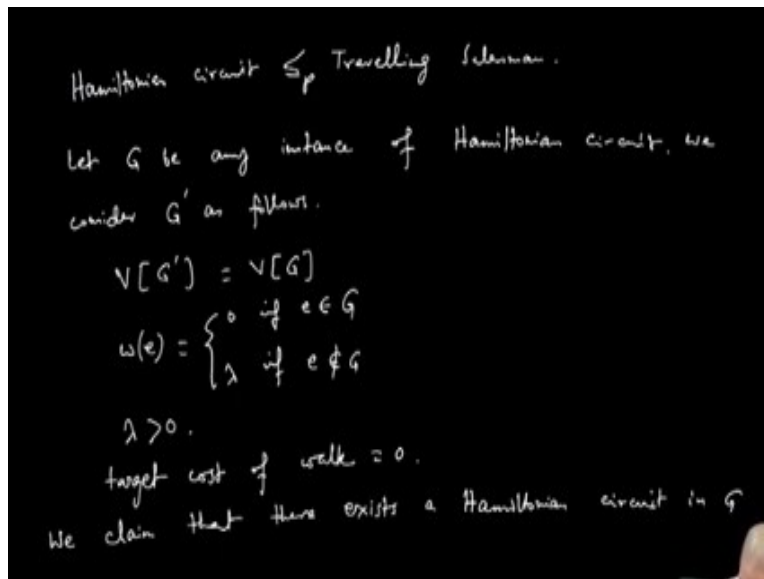 Hamiltonian circuit ≤p Travelling Salesman.
Let G be any instance of Hamiltonian circuit, we
consider G' as follows.
V[G'] = V[G]
w(e) = { 0 if e ∈ G
λ if e ∉ G
λ > 0.
target cost of walk = 0.
We claim that there exists a Hamiltonian circuit in G